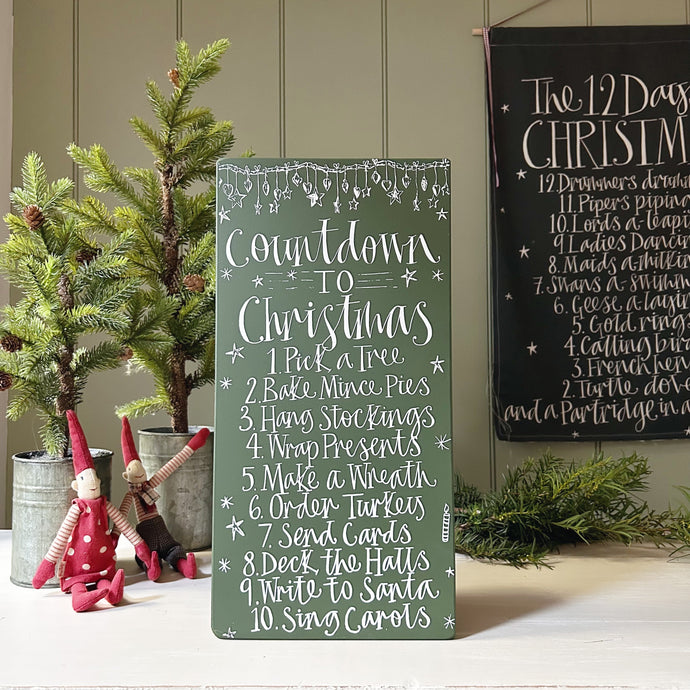 Countdown
TO
Christmas
1. Pick a Tree
2. Bake Mince Pies
3. Hang Stockings
4. Wrap Presents
5. Make a Wreath
6. Order Turkey
7. Send Cards
8. Deck the Halls
9. Write to Santa
10. Sing Carols
The 12 Days
CHRISTM
12. Drummers drumm
11. Pipers piping
10. Lords a-leapi
9. Ladies Dancin
8. Maids a-milkin
7. Swans a-swimm
6. Geese a-layin
5. Gold rings
4. Calling bir
3. French hen
2. Turtle dov
and a Partridge in a